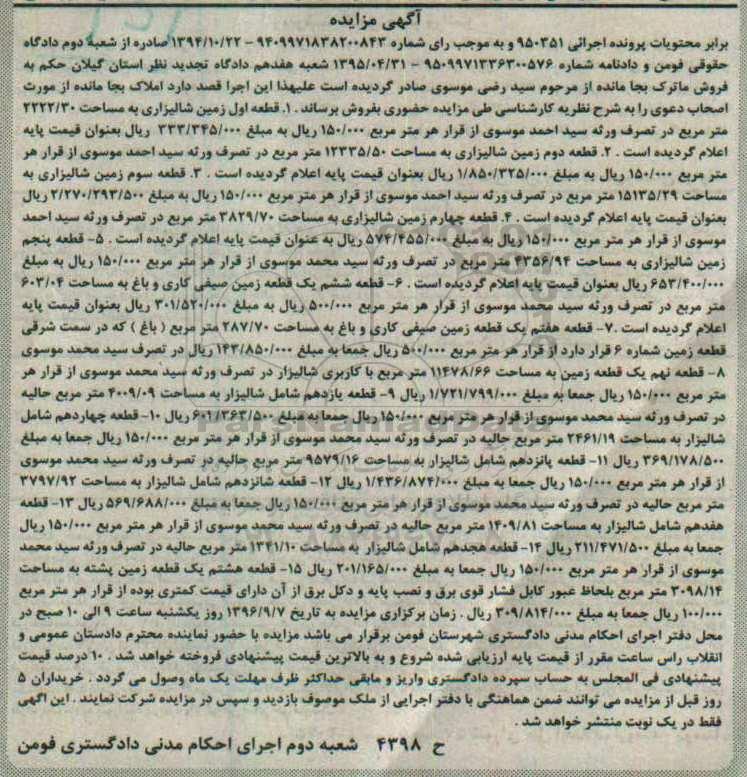 آگهی مزایده
برابر محتویات پرونده اجرائی ۹۵۰۳۵۱ و به موجب رای شماره ۹۴۰۹۹۷۱۸۳۸۲۰۰۸۴۳ – ۱۳۹۴/۱۰/۲۲ صادره از شعبه دوم دادگاه
حقوقی فومن و دادنامه شماره ۹۵۰۹۹۷۱۳۳۶۳۰۰۵۷۶ – ۱۳۹۵/۰۴/۳۱ شعبه هفدهم دادگاه تجدید نظر استان گیلان حکم به
فروش ماترک بجا مانده از مرحوم سید رضی موسوی صادر گردیده است علیهذا این اجرا قصد دارد املاک بجا مانده از مورث
اصحاب دعوی را به شرح نظریه کارشناسی طی مزایده حضوری بفروش برساند . ۱. قطعه اول زمین شالیزاری به مساحت ۲۲۲۲/۳۰
متر مربع در تصرف ورثه سید احمد موسوی از قرار هر متر مربع ۱۵۰/۰۰۰ ریال به مبلغ ۳۳۳/۳۴۵/۰۰۰ ریال بعنوان قیمت پایه
اعلام گردیده است . ۲. قطعه دوم زمین شالیزاری به مساحت ۱۲۳۳۵/۵۰ متر مربع در تصرف ورثه سید احمد موسوی از قرار هر
متر مربع ۱۵۰/۰۰۰ ریال به مبلغ ۱/۸۵۰/۳۲۵/۰۰۰ ریال بعنوان قیمت پایه اعلام گردیده است . ۳. قطعه سوم زمین شالیزاری به
مساحت ۱۵۱۳۵/۲۹ متر مربع در تصرف ورثه سید احمد موسوی از قرار هر متر مربع ۱۵۰/۰۰۰ ریال به مبلغ ۲/۲۷۰/۲۹۳/۵۰۰ ریال
بعنوان قیمت پایه اعلام گردیده است . ۴. قطعه چهارم زمین شالیزاری به مساحت ۳۸۲۹/۷۰ متر مربع در تصرف ورثه سید احمد
موسوی از قرار هر متر مربع ۱۵۰/۰۰۰ ریال به مبلغ ۵۷۴/۴۵۵/۰۰۰ ریال به عنوان قیمت پایه اعلام گردیده است . ۵- قطعه پنجم
زمین شالیزاری به مساحت ۴۳۵۶/۹۴ متر مربع در تصرف ورثه سید محمد موسوی از قرار هر متر مربع ۱۵۰/۰۰۰ ریال به مبلغ
۶۵۳/۴۰۰/۰۰۰ ریال بعنوان قیمت پایه اعلام گردیده است . ۶- قطعه ششم یک قطعه زمین صیفی کاری و باغ به مساحت ۶۰۳/۰۴
متر مربع در تصرف ورثه سید محمد موسوی از قرار هر متر مربع ۵۰۰/۰۰۰ ریال به مبلغ ۳۰۱/۵۲۰/۰۰۰ ریال بعنوان قیمت پایه
اعلام گردیده است .۷- قطعه هفتم یک قطعه زمین صیفی کاری و باغ به مساحت ۲۸۷/۷۰ متر مربع ( باغ ) که در سمت شرقی
قطعه زمین شماره ۶ قرار دارد از قرار هر متر مربع ۵۰۰/۰۰۰ ریال جمعا به مبلغ ۱۴۳/۸۵۰/۰۰۰ ریال در تصرف سید محمد موسوی
۸- قطعه نهم یک قطعه زمین به مساحت ۱۱۴۷۸/۶۶ متر مربع با کاربری شالیزار در تصرف ورثه سید محمد موسوی از قرار هر
متر مربع ۱۵۰/۰۰۰ ریال جمعا به مبلغ ۱/۷۲۱/۷۹۹/۰۰۰ ریال ۹- قطعه یازدهم شامل شالیزار به مساحت ۴۰۰۹/۰۹ متر مربع حالیه
در تصرف ورثه سید محمد موسوی از قرار هر متر مربع ۱۵۰/۰۰۰ ریال جمعا به مبلغ ۶۰۱/۳۶۳/۵۰۰ ریال ۱۰- قطعه چهاردهم شامل
شالیزار به مساحت ۲۴۶۱/۱۹ متر مربع حالیه در تصرف ورثه سید محمد موسوی از قرار هر متر مربع ۱۵۰/۰۰۰ ریال جمعا به مبلغ
۳۶۹/۱۷۸/۵۰۰ ریال ۱۱- قطعه پانزدهم شامل شالیزار به مساحت ۹۵۷۹/۱۶ متر مربع حالیه در تصرف ورثه سید محمد موسوی
از قرار هر متر مربع ۱۵۰/۰۰۰ ریال جمعا به مبلغ ۱/۴۳۶/۸۷۴/۰۰۰ ریال ۱۲- قطعه شانزدهم شامل شالیزار به مساحت ۳۷۹۷/۹۲
متر مربع حالیه در تصرف ورثه سید محمد موسوی از قرار هر متر مربع ۱۵۰/۰۰۰ ریال جمعا به مبلغ ۵۶۹/۶۸۸/۰۰۰ ریال ۱۳- قطعه
هفدهم شامل شالیزار به مساحت ۱۴۰۹/۸۱ متر مربع حالیه در تصرف ورثه سید محمد موسوی از قرار هر متر مربع ۱۵۰/۰۰۰ ریال
جمعا به مبلغ ۲۱۱/۴۷۱/۵۰۰ ریال ۱۴- قطعه هجدهم شامل شالیزار به مساحت ۱۳۴۱/۱۰ متر مربع حالیه در تصرف ورثه سید محمد
موسوی از قرار هر متر مربع ۱۵۰/۰۰۰ ریال جمعا به مبلغ ۲۰۱/۱۶۵/۰۰۰ ریال ۱۵- قطعه هشتم یک قطعه زمین پشته به مساحت
۳۰۹۸/۱۴ متر مربع بلحاظ عبور کابل فشار قوی برق و نصب پایه و دکل برق از آن دارای قیمت کمتری بوده از قرار هر متر مربع
۱۰۰/۰۰۰ ریال جمعا به مبلغ ۳۰۹/۸۱۴/۰۰۰ ریال . زمان برگزاری مزایده به تاریخ ۱۳۹۶/۹/۷ روز یکشنبه ساعت ۹ الی ۱۰ صبح در
محل دفتر اجرای احکام مدنی دادگستری شهرستان فومن برقرار می باشد مزایده با حضور نماینده محترم دادستان عمومی و
انقلاب راس ساعت مقرر از قیمت پایه ارزیابی شده شروع و به بالاترین قیمت پیشنهادی فروخته خواهد شد . ۱۰ درصد قیمت
پیشنهادی فی المجلس به حساب سپرده دادگستری واریز و مابقی حداکثر ظرف مهلت یک ماه وصول می گردد . خریداران ۵
روز قبل از مزایده می توانند ضمن هماهنگی با دفتر اجرایی از ملک موصوف بازدید و سپس در مزایده شرکت نمایند . این اگهی
فقط در یک نوبت منتشر خواهد شد .
ح ۴۳۹۸ شعبه دوم اجرای احکام مدنی دادگستری فومن